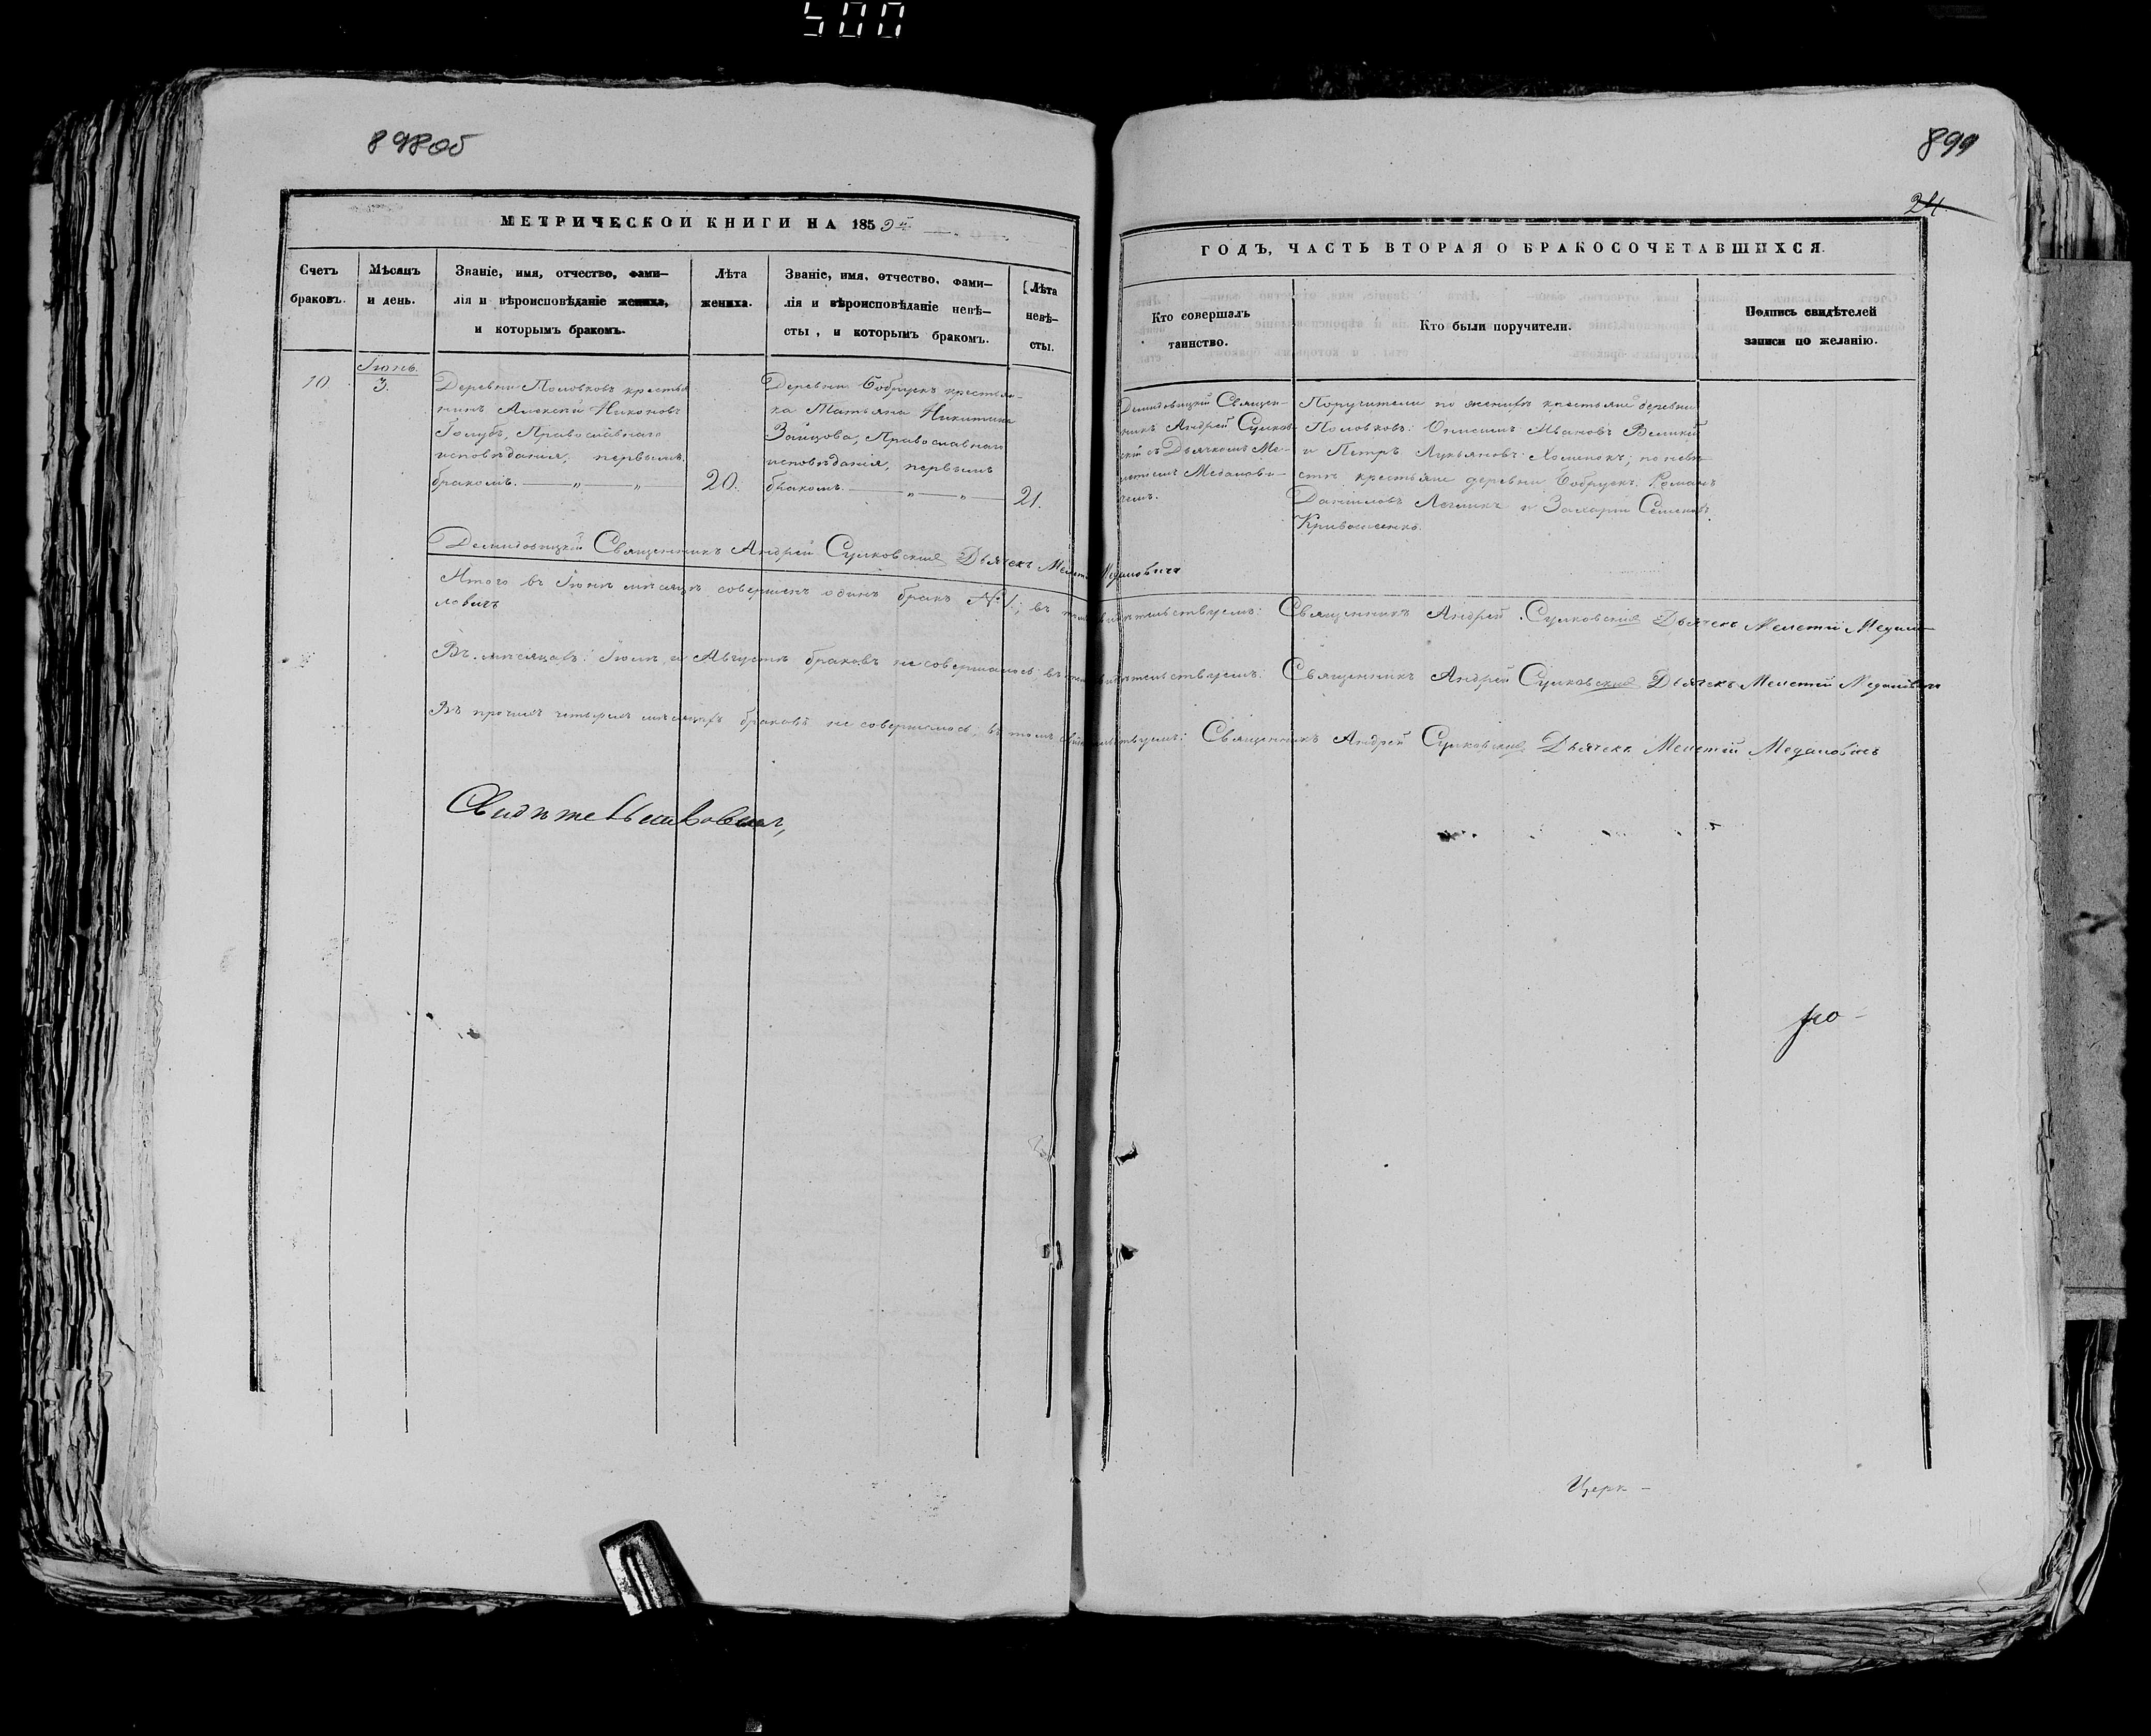 500
898об
899
24.
МЕТРИЧЕСКОЙ КНИГИ НА 1859й
ГОДЪ, ЧАСТЬ ВТОРАЯ О БРАКОСОЧЕТАВШИХСЯ.
Счетъ
браковъ.
Мѣсяцъ
и день.
Званіе, имя, отчество, фами–
лія и вѣроисповѣданіе жениха,
и которымъ бракомъ.
Лѣта
жениха.
Званіе, имя, отчество, фами–
лія и вѣроисповѣданіе невѣ–
сты, и которымъ бракомъ.
Лѣта
невѣ–
сты.
Кто совершалъ
таинство.
Кто были поручители.
Подпись свидѣтелей
записи по желанію.
10.
Іюнь.
3.
Деревни Половковъ крестья
нинъ Алексій Никоновъ
Голубъ, Православнаго
исповѣданія, первымъ
бракомъ. — „ — „
20.
Деревни Бобрускъ крестьян-
ка Татьяна Никитина
Зайцова, Православнаго
исповѣданія, первымъ
бракомъ. — „ — „ —
21.
Демидовицкій Священ-
никъ Андрей Сулков-
скій съ Дьячкомъ Ме-
летіемъ
Поручители по женихѣ крестьяне деревни
Половковъ: Онисимъ Ивановъ Великій
и Петръ Лукьяновъ Хоменокъ; по невѣ-
стѣ крестьяне деревни Бобрускъ: Романъ
Даніиловъ и Захарій Семеновъ
Демидовицкій Священникъ Андрей Сулковскій Дьячекъ
Итого въ Іюнѣ мѣсяцѣ совершенъ одинъ бракъ № 1; въ томъ свидѣтельствуемъ: Священникъ Андрей Сулковскій Дьячекъ Мелетій
ловичъ
Въ мѣсяцахъ: Іюлѣ и Августѣ браковъ не совершалось; въ томъ свидѣтельствуемъ: Священникъ Андрей Сулковскій Дьячекъ Мелетій
Въ прочихъ четырехъ мѣсяцахъ браковъ не совершалось; въ томъ свидѣтельствуемъ: Священникъ Андрей Сулковскій Дьячекъ Мелетій
Церк-